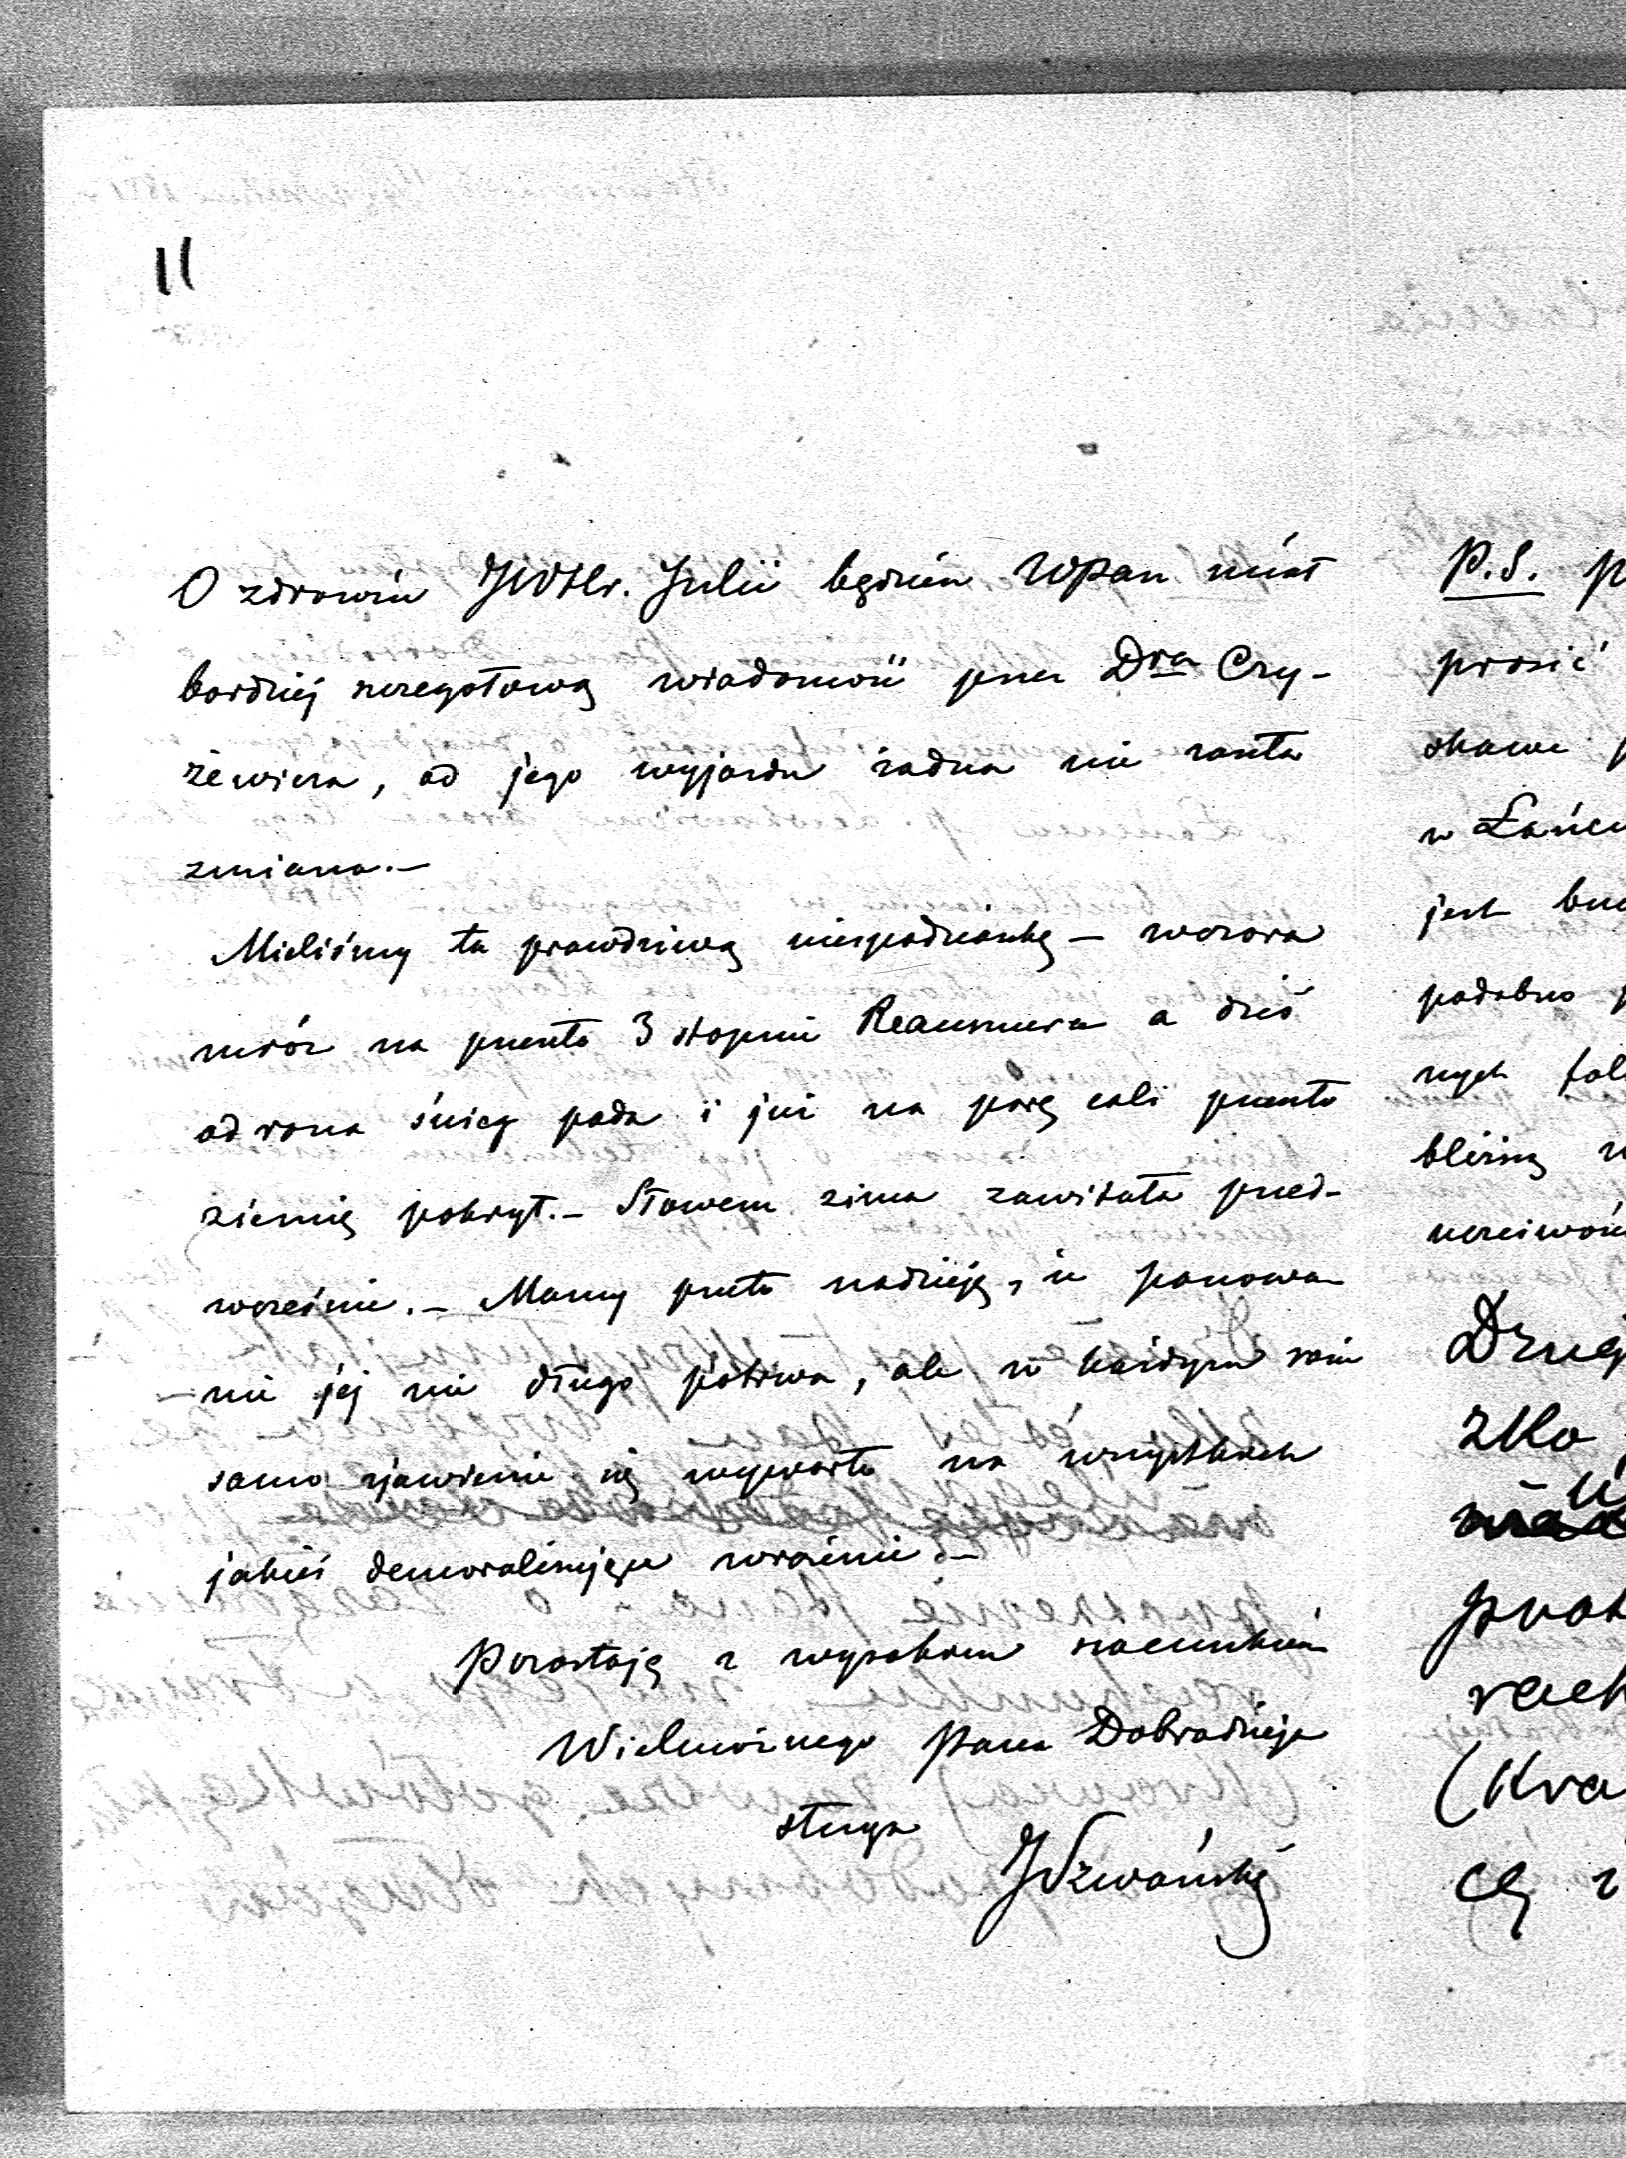 11
O zdrowiu JWHr. Julii będzie WPan miał
bardziej szczegółową wiadomość przez Dra Czy-
żewicza, od jego wyjazdu żadna nie zaszła
zmiana.—
Mieliśmy tu prawdziwą niespodziankę — wczora
mróz na przeszło 3 stopnie Reaumura a dziś
od rana śnieg pada i już na parę cali przeszło
ziemię pokrył.— Słowem zima zawitała przed-
wcześnie.— Mamy przeto nadzieję, że panowa-
nie jej nie długo potrwa, ale w każdym razie
samo zjawienie się wywarło na wszystkich
jakieś demoralizujące wrażenie.—
Pozostaję z wysokim szacunkiem
Wielmożnego Pana Dobrodzieja
sługa
P.S. p
prosić
skawe p
w Łańcu
jest
podobno p
nych fol
bliższą
Dziej
zko
rach
(Kra
cą i